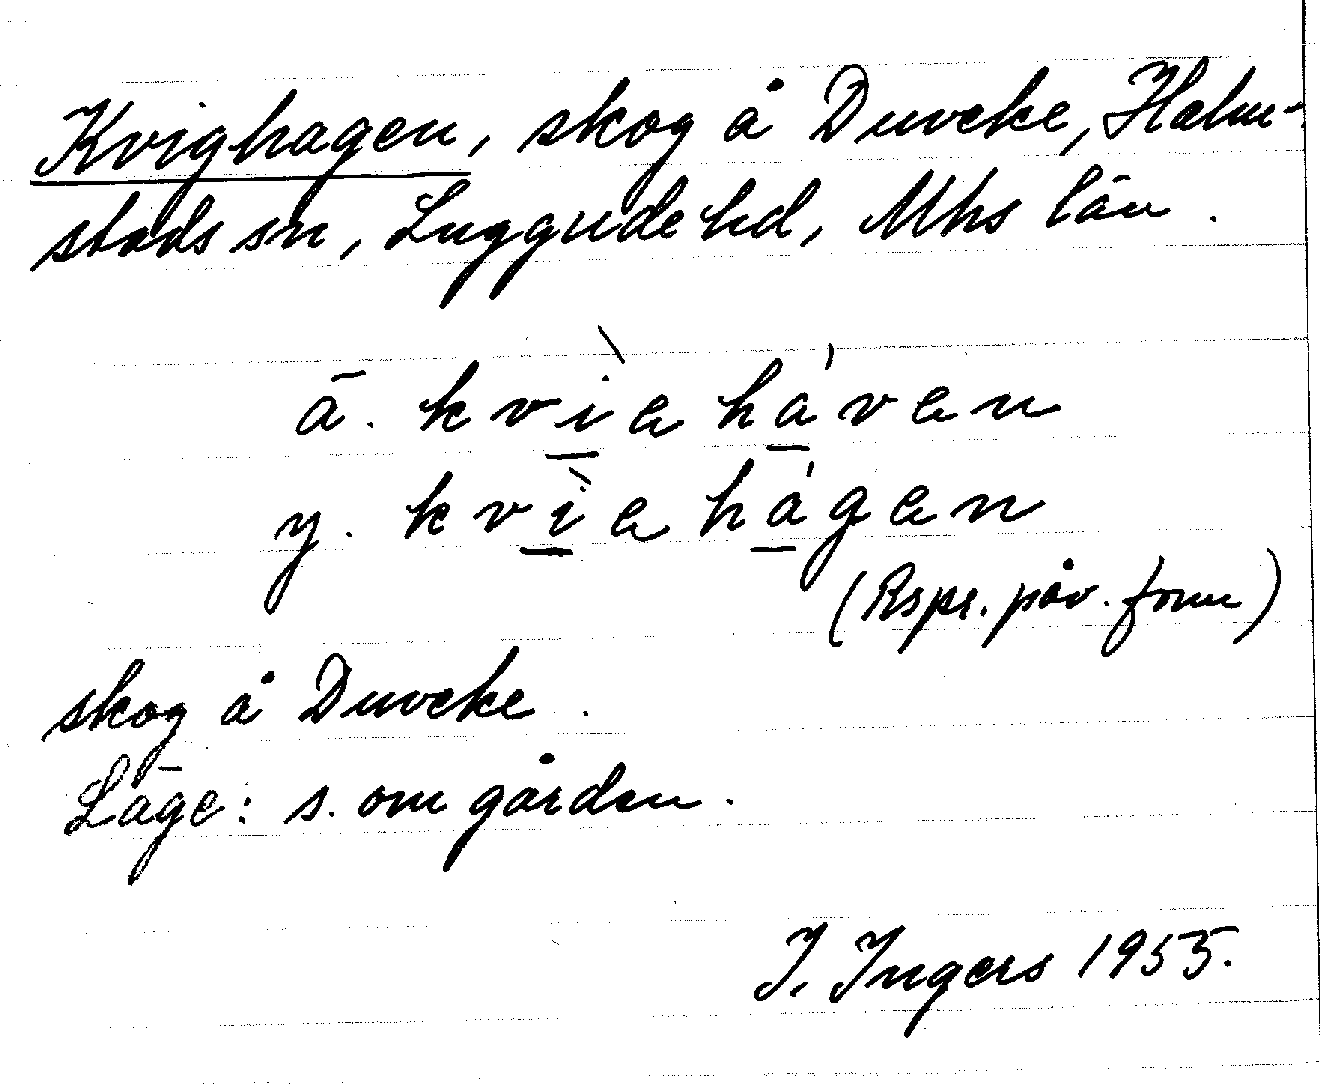 Kvighagen, skog å Duveke, Halm-
stads sn, Luggude hd, Mhs län.
ä. kvìahávan
y. kvìahágan
(Rspr. påv. form)
skog å Duveke.
Läge: s. om gården.
I. Ingers 1955.